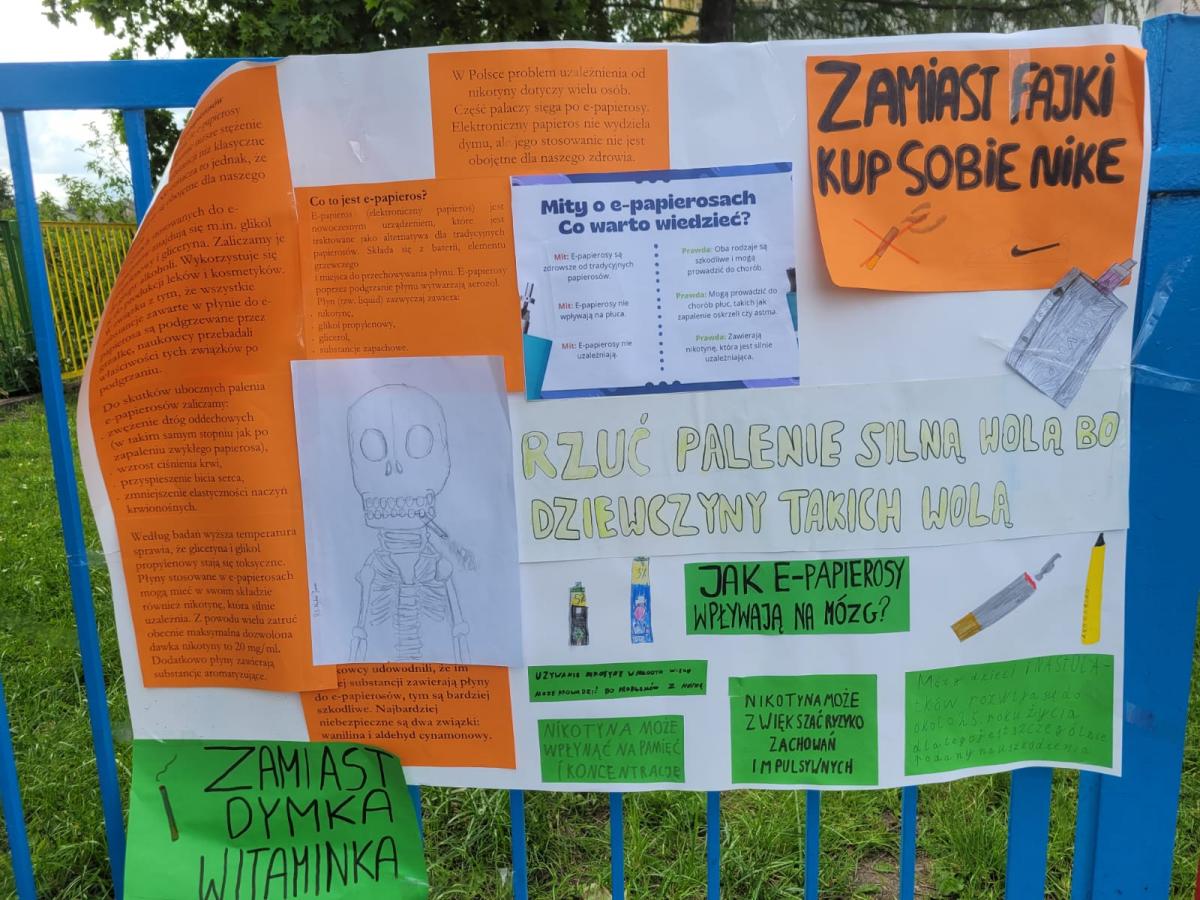 e-papierosy
stężenie
niż klasyczne
to jednak, że
obojętne dla naszego
do e-
znajdują się m.in. glikol
i gliceryna. Zaliczamy je
alkoholi. Wykorzystuje się
do produkcji leków i kosmetyków.
W związku z tym, że wszystkie
substancje zawarte w płynie do e-
papierosa są podgrzewane przez
grzałkę, naukowcy przebadali
właściwości tych związków po
podgrzaniu.
Do skutków ubocznych palenia
e-papierosów zaliczamy:
zwężenie dróg oddechowych
(w takim samym stopniu jak po
zapaleniu zwykłego papierosa),
- wzrost ciśnienia krwi,
przyspieszenie bicia serca,
- zmniejszenie elastyczności naczyń
krwionośnych.
Według badań wyższa temperatura
sprawia, że gliceryna i glikol
propylenowy stają się toksyczne.
Płyny stosowane w e-papierosach
mogą mieć w swoim składzie
również nikotynę, która silnie
uzależnia. Z powodu wielu zatruć
obecnie maksymalna dozwolona
dawka nikotyny to 20 mg/ml.
Dodatkowo płyny zawierają
substancje aromatyzujące.
W Polsce problem uzależnienia od
nikotyny dotyczy wielu osób.
Część palaczy sięga po e-papierosy.
Elektroniczny papieros nie wydziela
dymu, ale jego stosowanie nie jest
obojętne dla naszego zdrowia.
Co to jest e-papieros?
E-papieros (elektroniczny papieros) jest
nowoczesnym urządzeniem, które jest
traktowane jako alternatywa dla tradycyjnych
papierosów. Składa się z baterii, elementu
grzewczego
i miejsca do przechowywania płynu. E-papierosy
poprzez podgrzanie płynu wytwarzają aerozol.
Płyn (tzw. liquid) zazwyczaj zawiera:
- nikotynę,
- glikol propylenowy,
- glicerol,
- substancje zapachowe.
Mity o e-papierosach
Co warto wiedzieć?
Mit: E-papierosy są
zdrowsze od tradycyjnych
papierosów.
Mit: E-papierosy nie
wpływają na płuca.
Mit: E-papierosy nie
uzależniają.
Prawda: Oba rodzaje są
szkodliwe i mogą
prowadzić do chorób.
Prawda: Mogą prowadzić do
chorób płuc, takich jak
zapalenie oskrzeli czy astma.
Prawda: Zawierają
nikotynę, która jest silnie
uzależniająca.
ZAMIAST FAJKI
KUP SOBIE NIKE
RZUĆ PALENIE SILNĄ WOLĄ BO
DZIEWCZYNY TAKICH WOLĄ
JAK E-PAPIEROSY
WPŁYWAJĄ NA MÓZG?
UŻYWANIE NIKOTYNY W MŁODYM WIEKU
MOŻE PROWADZIĆ DO PROBLEMÓW Z NAUKĄ
NIKOTYNA MOŻE
WPŁYNĄĆ NA PAMIĘĆ
I KONCENTRACJĘ
NIKOTYNA MOŻE
ZWIĘKSZAĆ RYZYKO
ZACHOWAŃ
IMPULSYWNYCH
Mózg dzieci i NASTOLA-
tków rozwija się do
około 25. roku życia
dlatego jest szczególnie
podany na uszkodzenia
udowodnili, że im
substancji zawierają płyny
do e-papierosów, tym są bardziej
szkodliwe. Najbardziej
niebezpieczne są dwa związki:
wanilina i aldehyd cynamonowy.
ZAMIAST
DYMKA
WITAMINKA